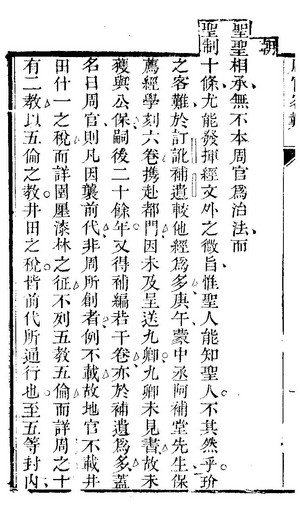 朝
聖聖相承無不本周官為治法而
聖制十條尤能發揮經文外之微旨惟聖人能知聖人不其然乎玠
之客難於訂訛補遺較他經為多庚午蒙中丞阿補堂先生保
薦經學刻六卷攜赴都門因未及呈送九卿九卿未見書故未
獲與公保嗣後二十餘年又得補編若干卷亦於補遺為多蓋
名曰周官則凡因襲前代非周所創者例不載故地官不載井
田什一之稅而詳園廛漆林之征不列五教五倫而詳周之十
有二教以五倫之教井田之稅皆前代所通行也至五等封內